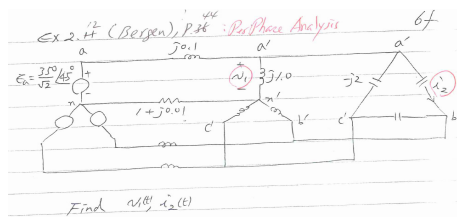 Ex 2.12 (Bergen), P.36 44 : Per Phase Analysis
6f
a
j0.1
a'
a'
Ea = 350/√2 /45°
+
-
+
v1
-
j1.0
-j2
i2
n
1+j0.01
n'
c'
b'
c'
b
Find v1(t), i2(t)